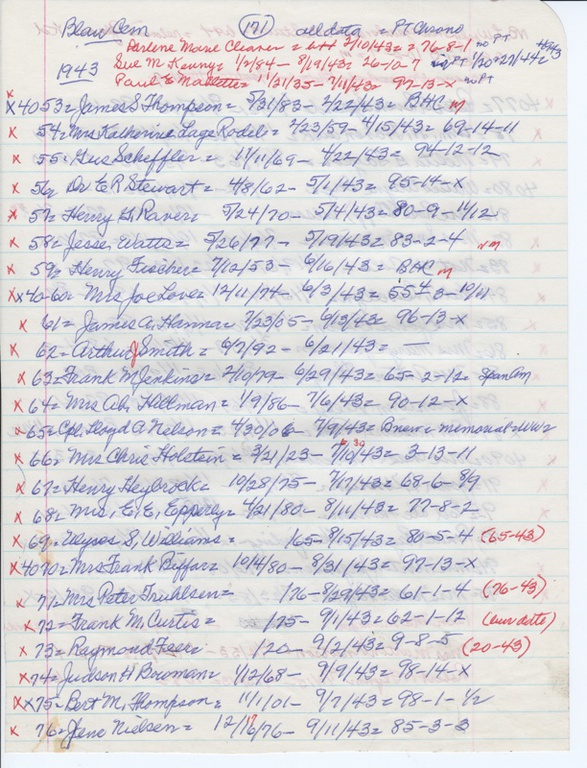 Blair Cem (171) all data = PT Chrono
Darlene Marie Cleaver = b+t 3/10/43 = 76-8-1 no PT
1943 Sue M. Kenny = 1/2/84 - 8/19/43 = 26-10-7 no PT 1/20 = 27/44
Paul E = 11/21/35 - 7/11/43 = 97-13-X no PT
X X 4053 = James S Thompson = 5/31/83 - 4/22/43 = BAC m
X 54 = Mrs Katherine Lage Rodel = 2/23/59 - 4/15/43 = 69-14-11
X 55 = Gus Scheffler = 11/11/69 - 4/22/43 = 94-12-12
X 56 = Dr E R Stewart = 4/8/62 - 5/1/43 = 95-14-X
X 57 = Henry G. Raver = 5/24/70 - 5/4/43 = 80-9-11/12
X 58 = Jesse Watts = 5/26/77 - 5/19/43 = 83-2-4 nm
X 59 = Henry Fischer = 7/12/53 - 6/16/43 = BAC m
X X 40-60 = Mrs Joe Love = 12/11/74 - 6/3/43 = 554-3-10/11
X 61 = James A. Hanna = 7/23/65 - 6/13/43 = 96-13-X
X 62 = Arthur J Smith = 6/7/92 - 6/21/43 = —
X 63 = Frank M Jenkins = 2/10/79 - 6/29/43 = 65-2-12 = Span Am
X 64 = Mrs Ab. Hillman = 1/9/86 - 7/6/43 = 90-12-X
X 65 = Cpl. Lloyd A. Nelson = 4/30/06 - 7/9/43 = Bnew = memorial = WW2
X 66 = Mrs Chris Holstein = 3/21/23 - 7/10/43 = 3-13-11
X 67 = Henry Heybrock = 10/28/75 - 7/17/43 = 68-6-8/9
X 68 = Mrs. E. E. Epperly = 4/21/80 - 8/11/43 = 77-8-2
X 69 = Ulysos S. Williams = /65 - 8/15/43 = 80-5-4 (65-43)
X 4070 = Mrs Frank Biffar = 10/4/80 - 8/31/43 = 97-13-X
X 71 = Mrs Peter Truhlsen = /76 - 8/29/43 = 61-1-4 (76-43)
X 72 = Frank M. Curtis = /75 - 9/1/43 = 62-1-12 (our data)
X 73 = Raymond Feser = /20 - 9/2/43 = 9-8-5 (20-43)
X X 74 = Judson H Bowman = 1/12/68 - 9/9/43 = 98-14-X
X X 75 = Bert M. Thompson = 11/1/01 - 9/7/43 = 98-1-1/2
X 76 = Jens Nielsen = 12/19/76 - 9/11/43 = 85-3-3